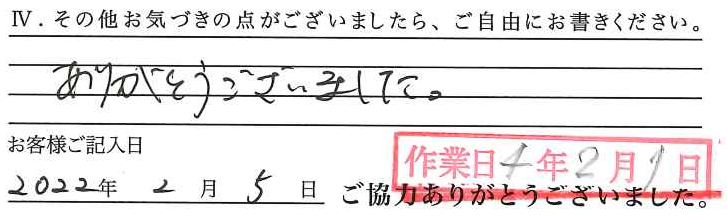 Ⅳ. その他お気づきの点がございましたら、ご自由にお書きください。
ありがとうございました。
お客様ご記入日
作業日4年2月1日
2022年 2 月 5 日 ご協力ありがとうございました。